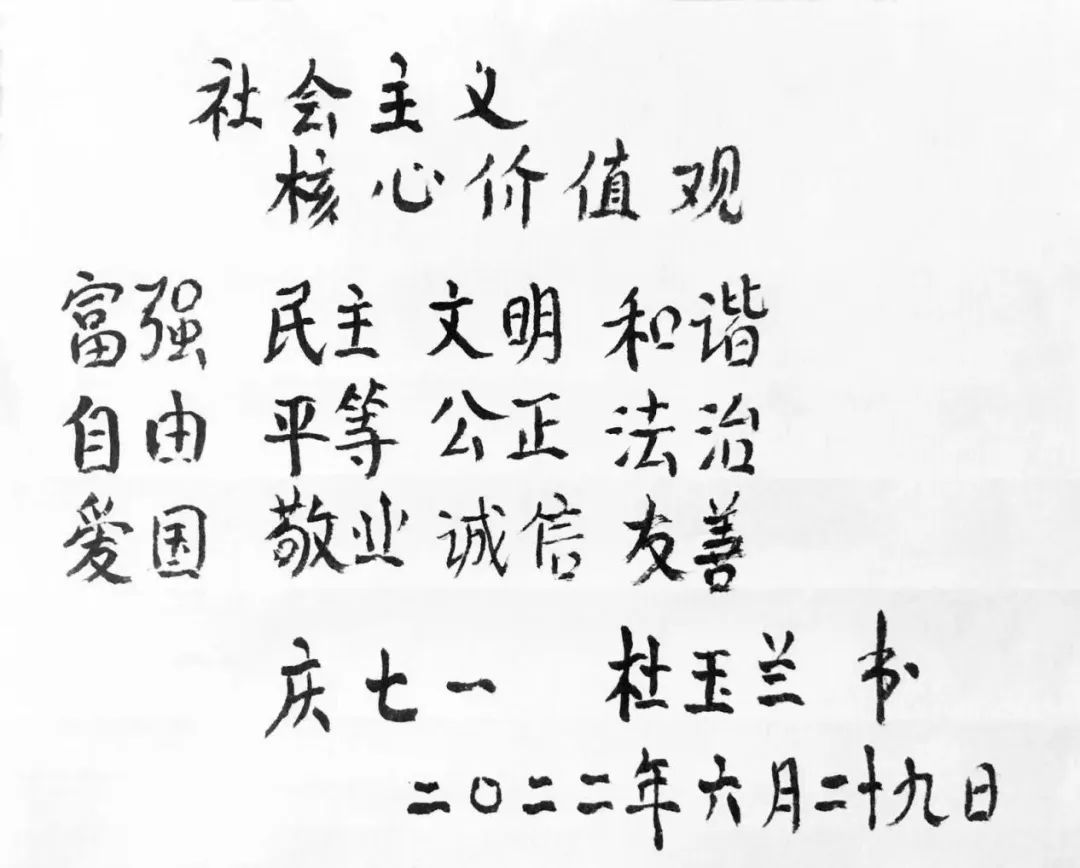 社会主义
核心价值观
富强 民主 文明 和谐
自由 平等 公正 法治
爱国 敬业 诚信 友善
庆七一 杜玉兰 书
二〇二二年六月二十九日